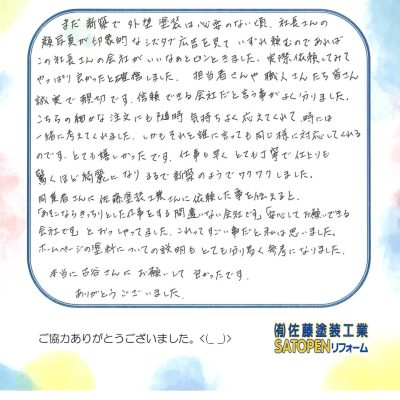 まだ新築で外壁塗装は必要のない頃、社長さんの
顔写真が印象的なシズタグ広告を見ていずれ頼むのであれば
この社長さんの会社がいいなぁとピンときました。実際依頼してみて
やっぱり良かったと確信しました。担当者さんや職人さんたち皆さん
誠実で親切です。信頼できる会社だと言う事がよく分りました。
こちらの細かな注文にも随時気持ちよく応えてくれて、時には
一緒に考えてくれました。しかもそれを誰に言っても同じ様に対応してくれる
のです。とても嬉しかったです。仕事も早くとても丁寧で仕上りも
驚くほど綺麗になりまるで新築のようでワクワクしました。
同業者さんに佐藤塗装工業さんに依頼した事を伝えると、
「あそこならきっちりとした仕事をする間違いない会社です」「安心してお願いできる
会社です」とおっしゃってました。これってすごい事だと私は思いました。
ホームページの塗料についての説明もとても分り易く参考になりました。
本当に
さんにお願いして良かったです。
ありがとうございました。
ご協力ありがとうございました。<(_ _)>
㈲佐藤塗装工業
SATOPENリフォーム